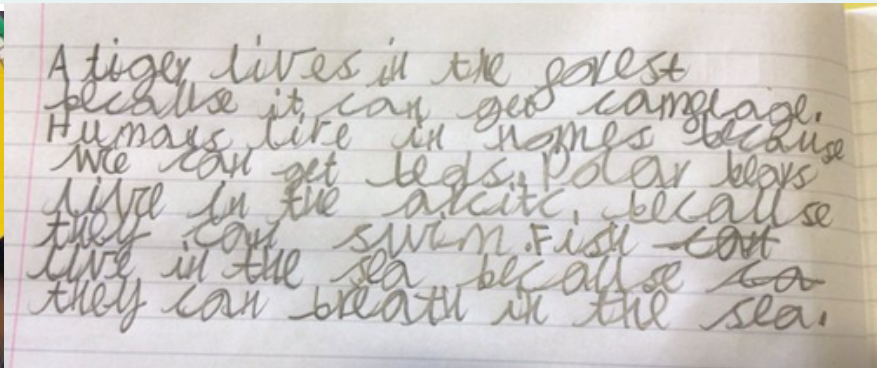 A tiger lives in the forest
because it can get camelage.
Humans live in homes because
we can get beds. Polar bears
live in the arcitc, because
they can swim. Fish can
live in the sea because ca
they can breath in the sea.